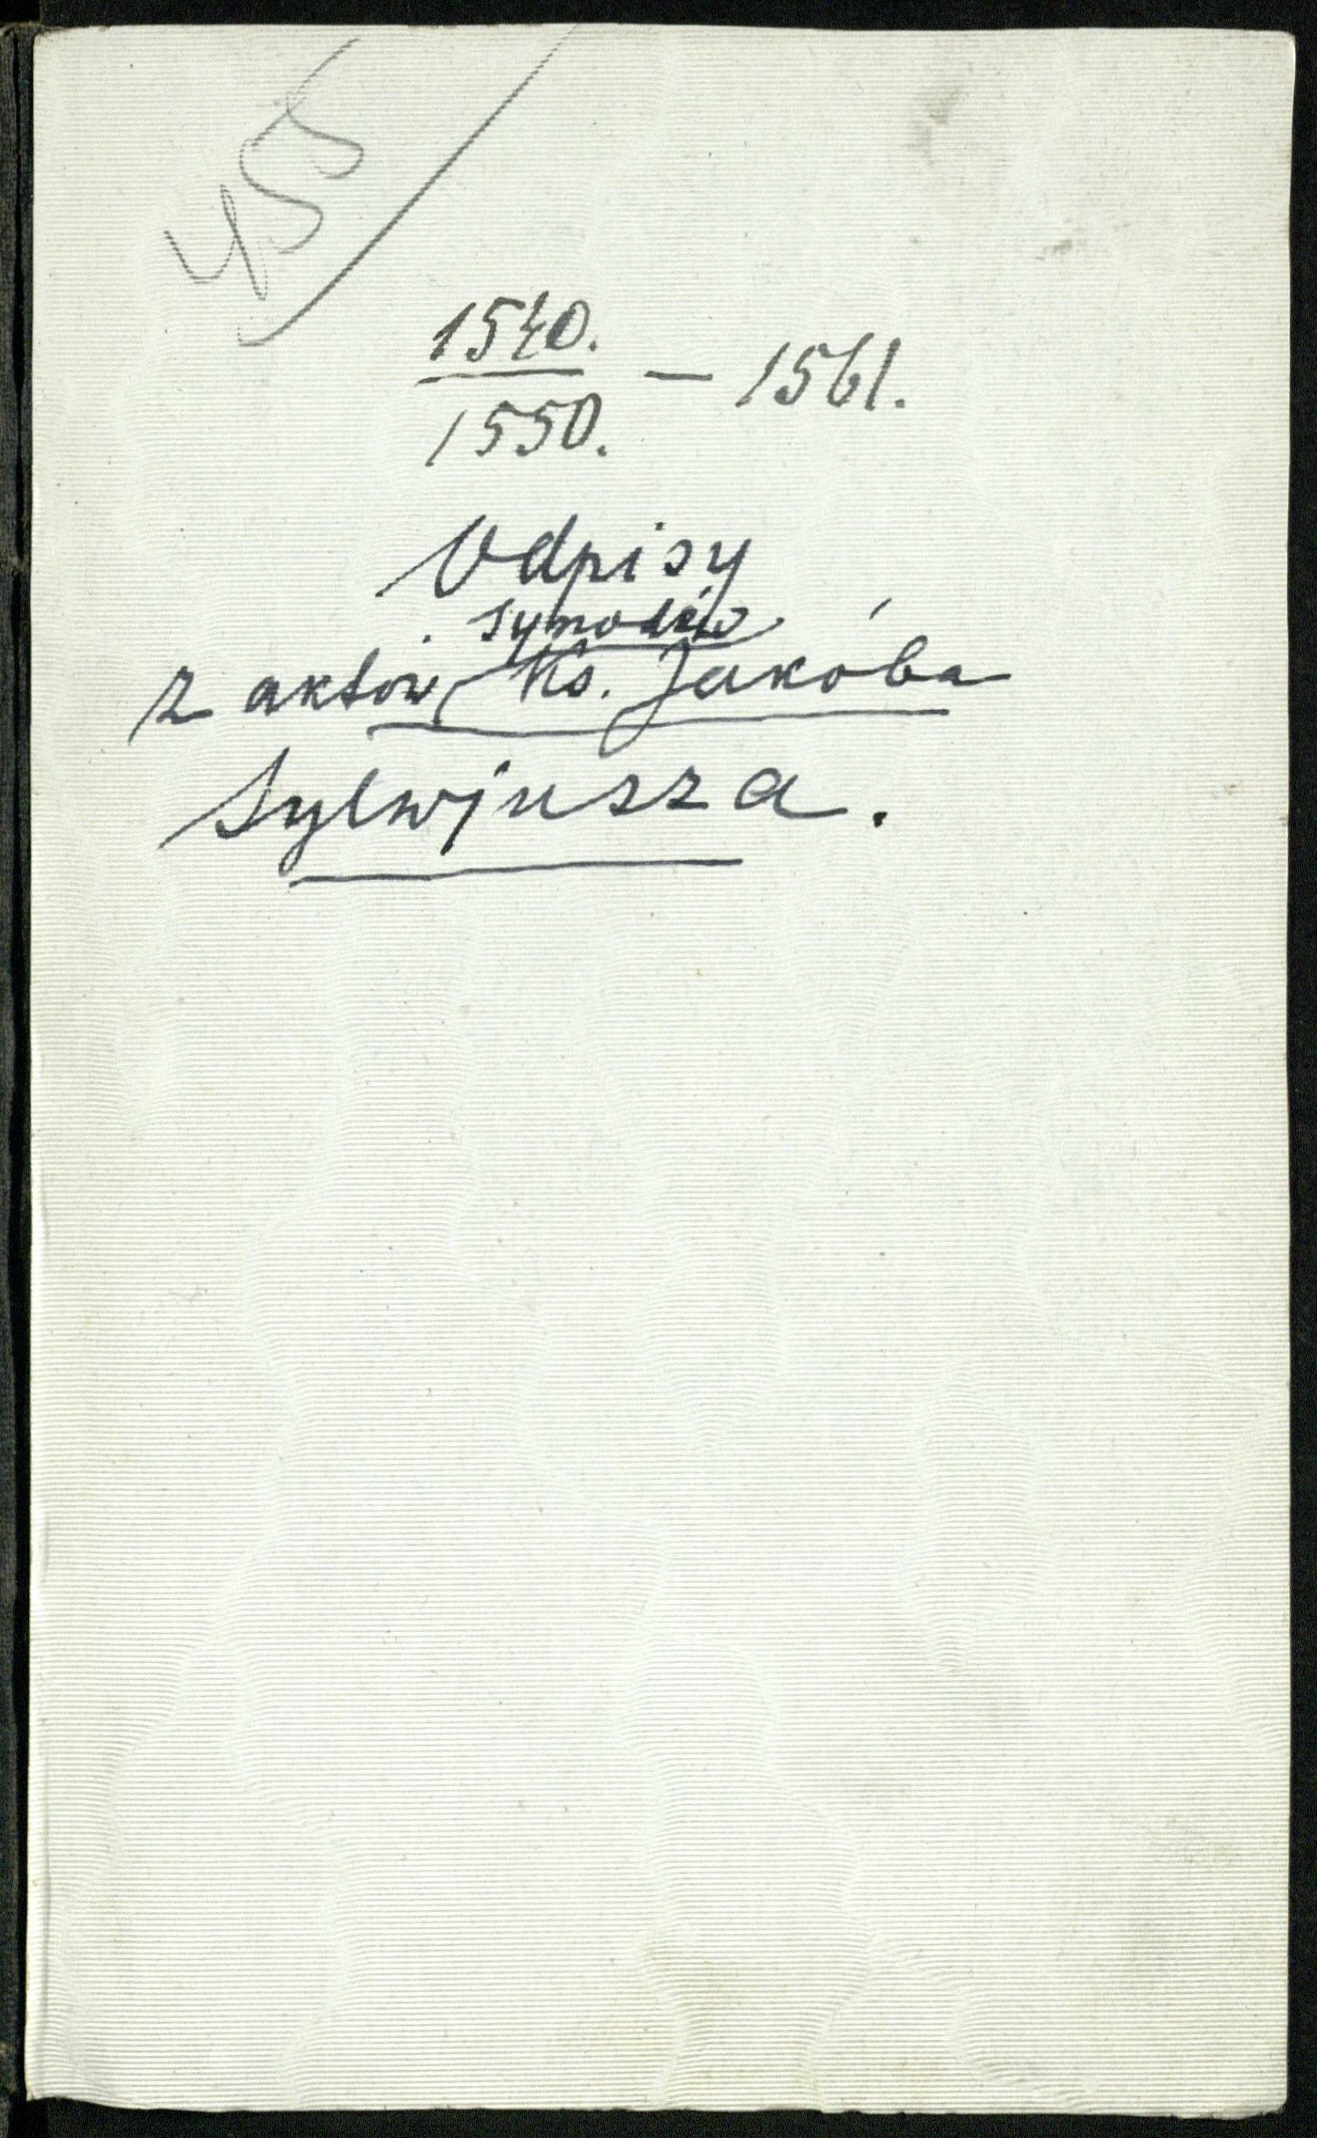 455
1540.
1550. — 1561.
Odpisy
synodów
z aktów Ks. Jakóba
Sylwjusza.